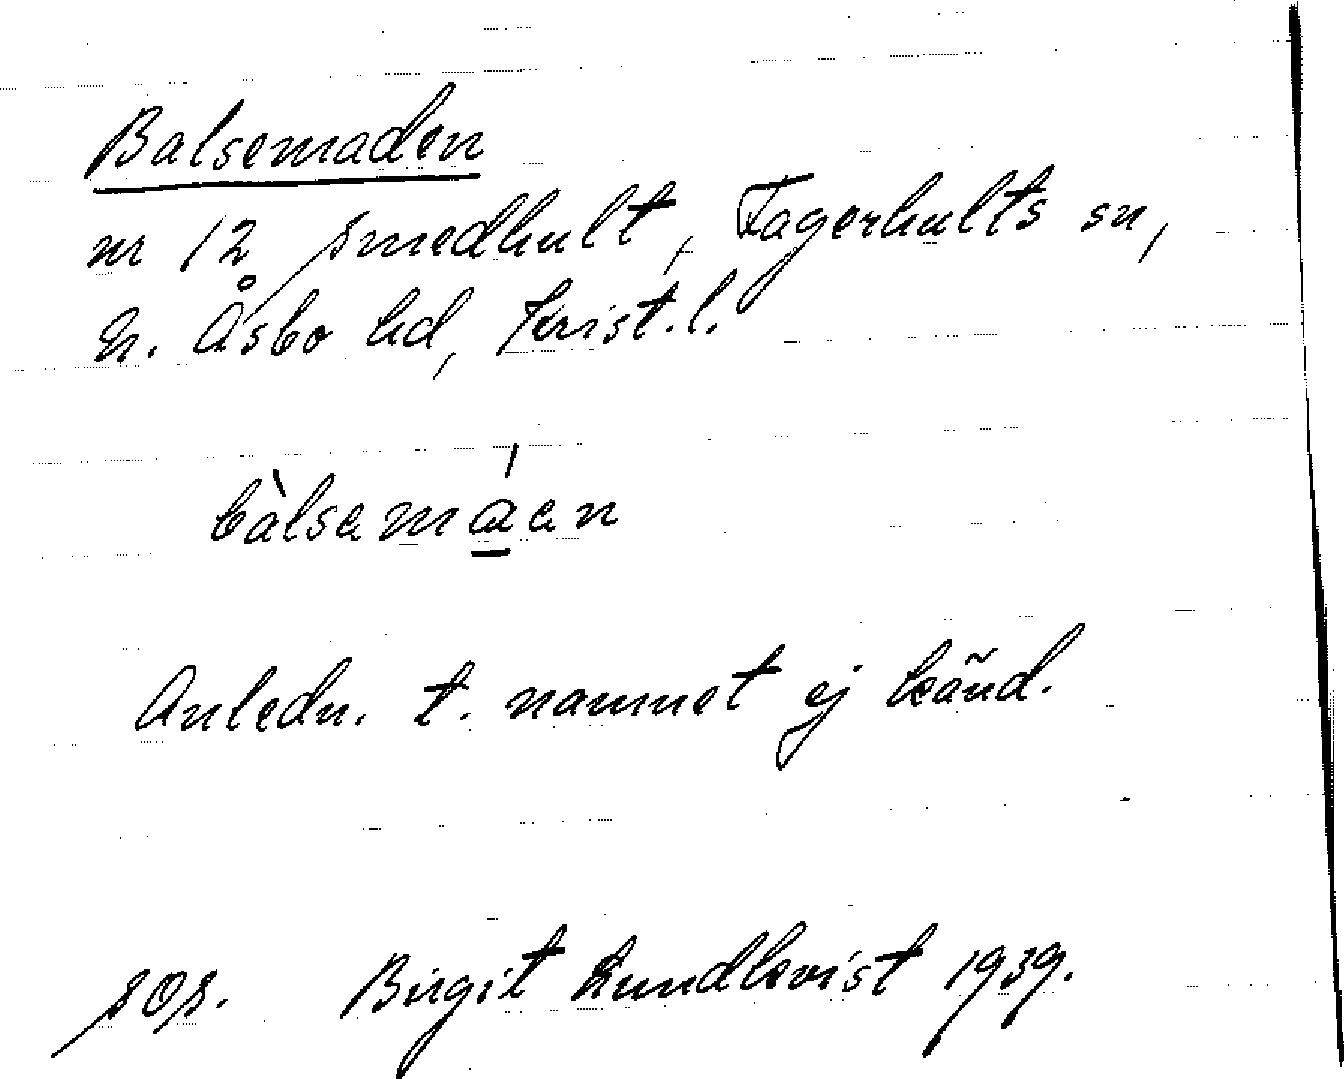 Balsemaden
nr 12 Smedhult, Fagerhults sn,
N. Åsbo hd, Krist. l.
bàlsamáen
Anledn. t. namnet ej känd.
sos. Birgit Lundkvist 1939.